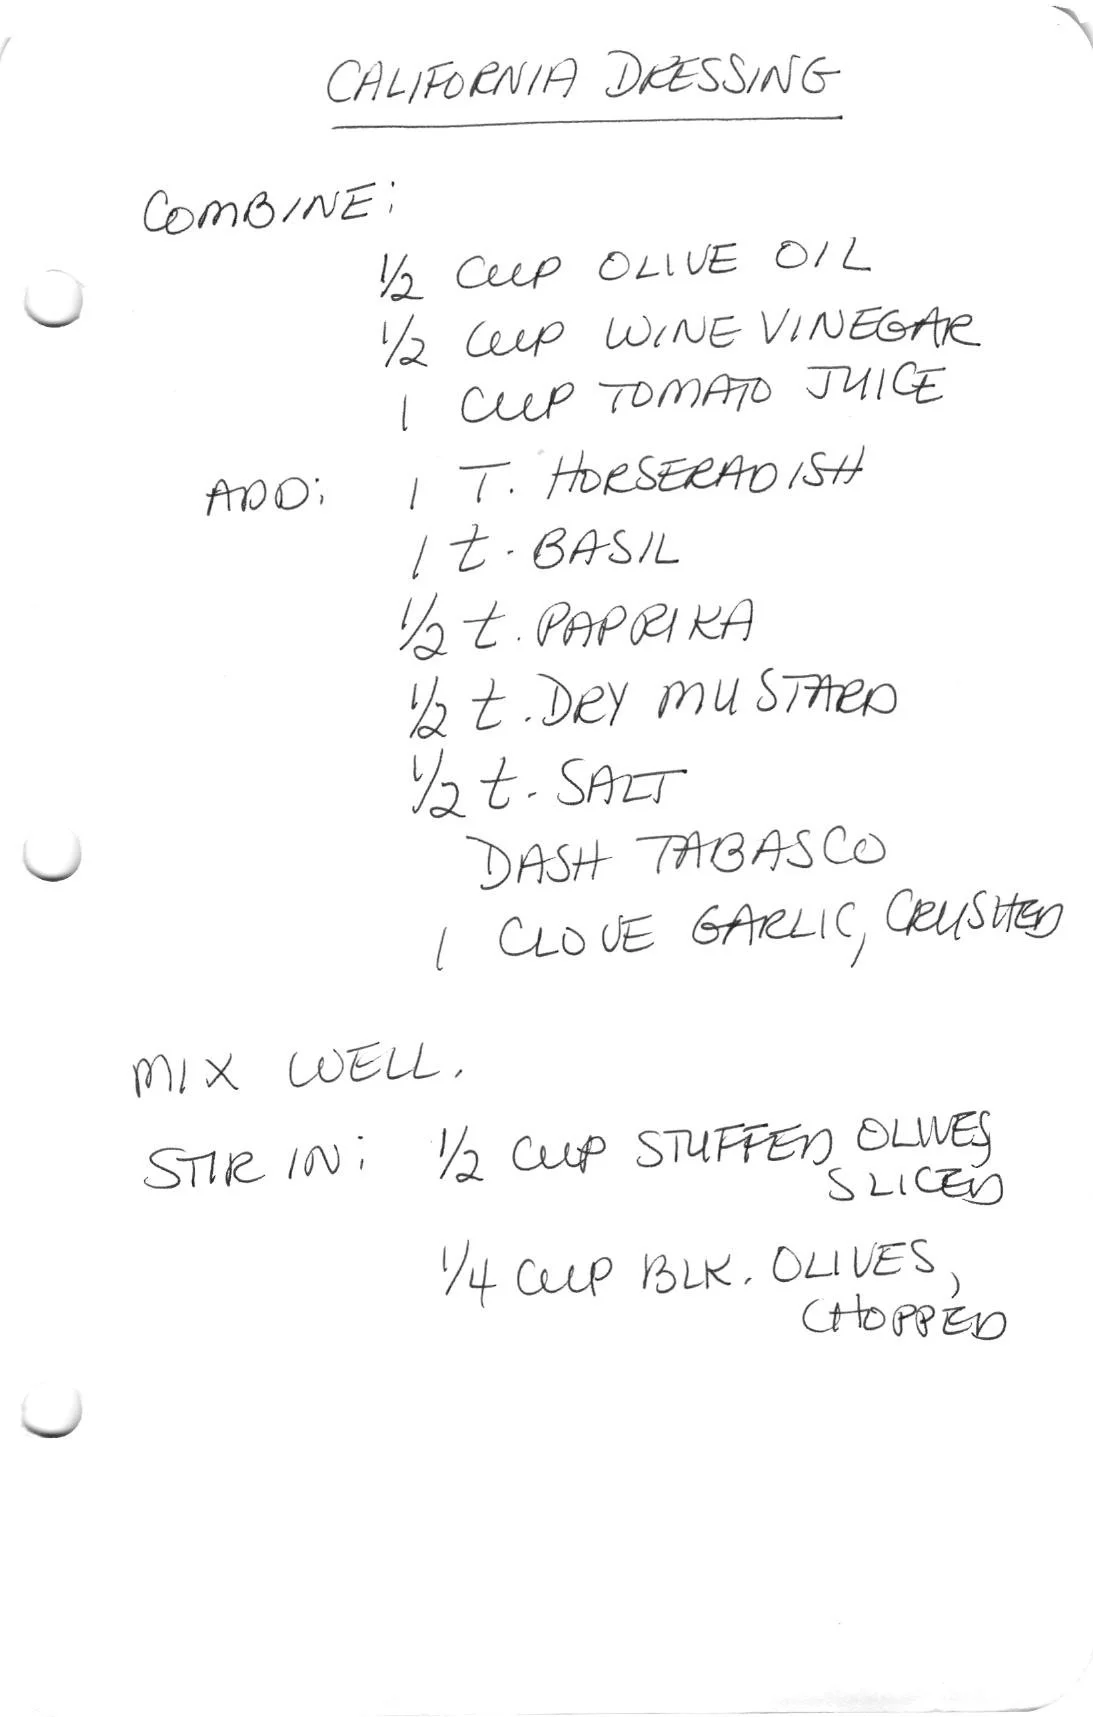 CALIFORNIA DRESSING
COMBINE:
1/2 CUP OLIVE OIL
1/2 CUP WINE VINEGAR
1 CUP TOMATO JUICE
ADD: 1 T. HORSERADISH
1 t. BASIL
1/2 t. PAPRIKA
1/2 t. DRY MUSTARD
1/2 t. SALT
DASH TABASCO
1 CLOVE GARLIC, CRUSHED
MIX WELL.
STIR IN: 1/2 CUP STUFFED OLIVES
SLICED
1/4 CUP BLK. OLIVES,
CHOPPED